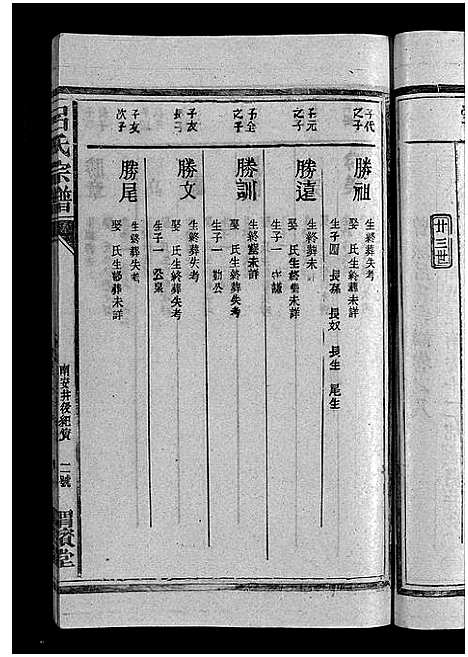 廿三世
子代之子
勝祖
生終葬失考
娶 氏生終葬失考
生子四 長孫 長奴 長生 尾生
子元之子
勝遠
生終葬未詳
娶 氏生終葬失考
生子一
子企之子
勝訓
生終葬未詳
娶 氏生終葬失考
生子一 勤公
子友長子
勝文
生終葬失考
娶 氏生終葬失考
生子一 公泉
子友次子
勝尾
生終葬失考
娶 氏生終葬未詳
呂氏宗譜
南安井後紀實
二號
渭濱堂